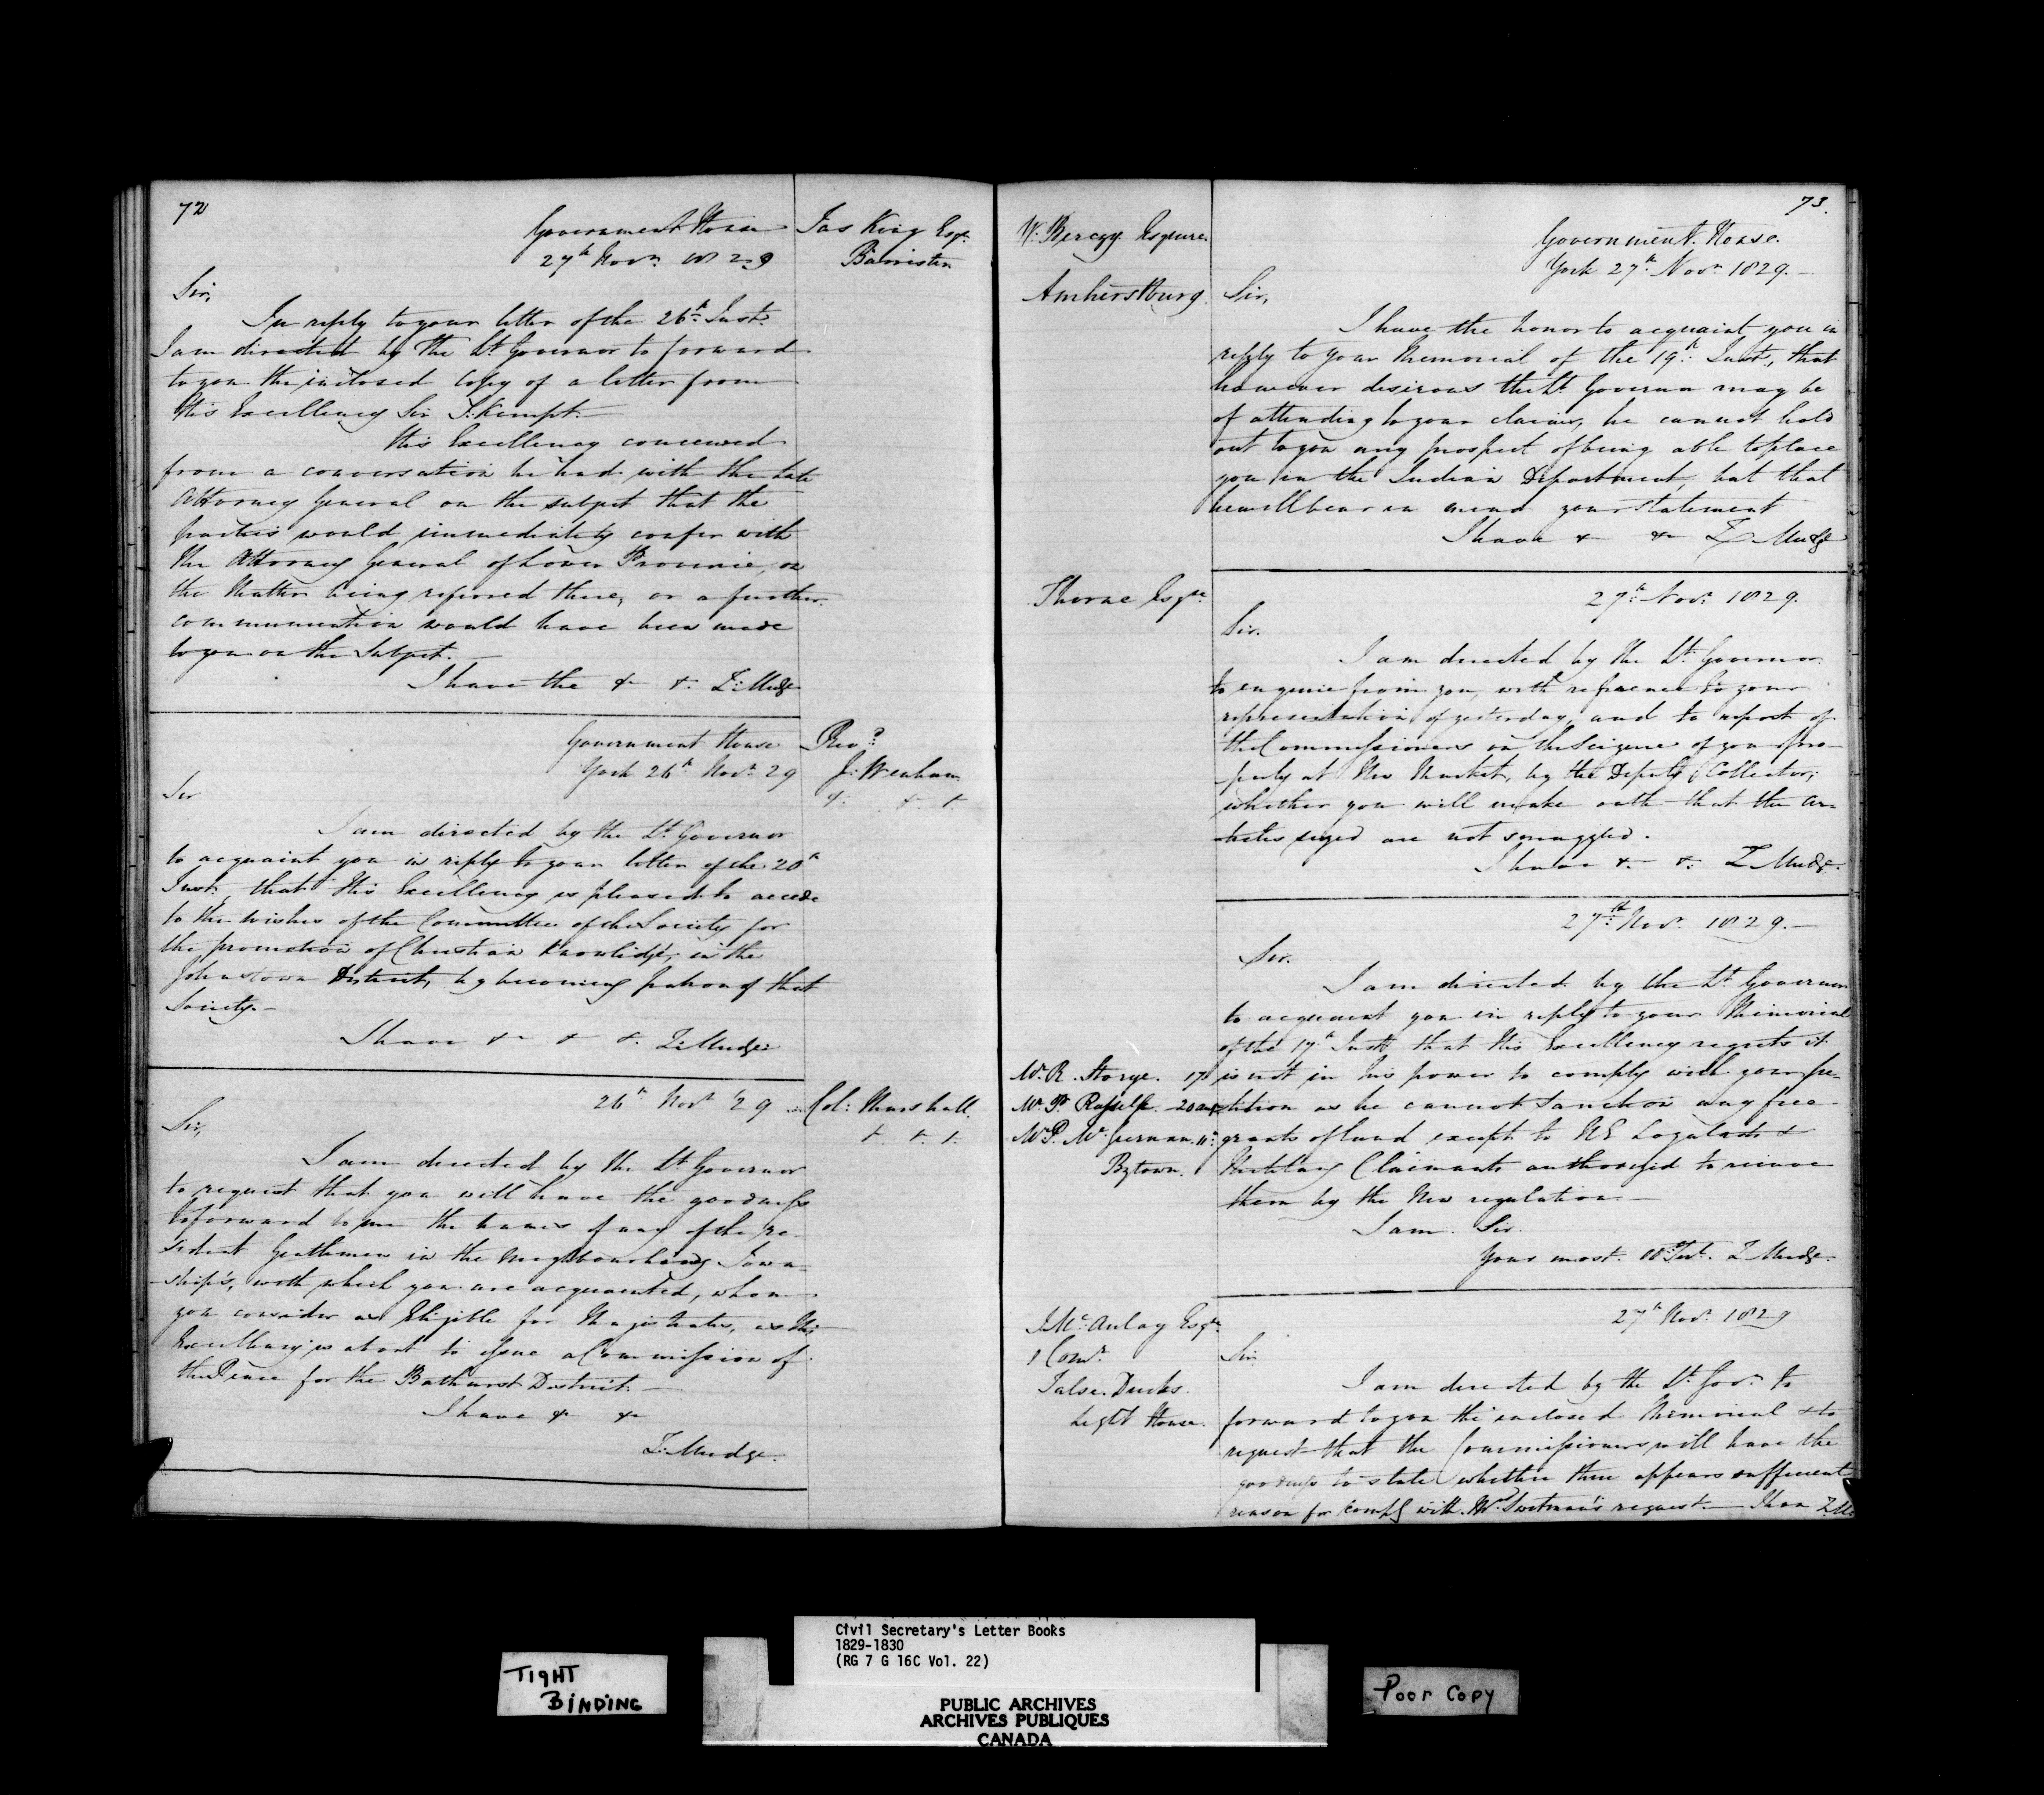 72
Government House
27th Novr. 1829
Jas King Esqr.
Barrister
Sir,
In reply to your letter of the 26th Inst.
I am directed by the Lt. Governor to forward
to you the inclosed Copy of a letter from
His Excellency Sir J. Kempt.
His Excellency conceived
from a conversation he had with the late
Attorney General on the subject that the
parties would immediately confer with
the Attorney General of Lower Province, on
the Matter being referred there, or a further
communication would have been made
to you on the Subject.
I have the &c &c. Z. Mudge
Government House
York 26th Novr. 29
Revd.
J. Wenham
&. &. &.
Sir
I am directed by the Lt. Governor
to acquaint you in reply to your letter of the 20th
Inst. that His Excellency is pleased to accede
to the wishes of the Committee of the Society for
the promotion of Christian Knowlidge, in the
Johnstown District, by becoming patron of that
Society.—
I have &c & &. Z. Mudge
26th Novr. '29
Col: Marshall
&. &. &.
Sir,
I am directed by the Lt. Governor
to request that you will have the goodness
to forward to me the names of any of the re-
sident Gentlemen in the neighbourhing Town-
ship's, with which you are acquainted, whom
you consider as Eligible for Magistrates, as His
Excellency is about to issue a Commission of
the Peace for the Bathurst District.—
I have &c &c
Z. Mudge.
73.
W. Berczy Esquire.
Amherstburg.
Government House.
York 27th Novr. 1829.—
Sir,
I have the honor to acquaint you in
reply to your Memorial of the 19th Inst., that
however desirous the Lt. Governor may be
of attending to your claims, he cannot hold
out to you any prospect of being able to place
you in the Indian Department, but that
he will bear in mind your statement
I have & &c Z Mudge
Thorne Esqre.
27th Novr. 1829.
Sir.
I am directed by the Lt. Governor.
to enquire from you, with reference to your
representation of yesterday, and to report of
the Commissioners on the Seizure of your pro-
perty at New Market, by the Deputy Collector;
whether you will make oath that the ar-
ticles seized are not smuggled.
I have &c &. Z Mudge.
27th Novr. 1829.—
Sir.
I am directed by the Lt. Governor
to acquaint you in reply to your Memorial
of the 17th Inst that His Excellency regrets it
Mr. R. Storye. 17th
is not in his power to comply with your pe-
tition as he cannot sanction any free
Mr. P.
Bytown.
grants of land except to UE Loyalists &
Military Claimants authorized to receive
them by the New regulation.—
I am. Sir.
Your most. Z Mudge.
J. Mc.Aulay Esqre.
1 Comr.
False Ducks.
Light House.
27th Novr. 1829
Sir
I am directed by the Lt. Govr. to
forward to you the enclosed Memorial & to
request that the Commissioners will have the
goodness to state whether there appears sufficient
reason for comply with Mr. Swetman's request.— I have Z. M.
TIGHT
BINDING
Civil Secretary's Letter Books
1829-1830
(RG 7 G 16C Vol. 22)
PUBLIC ARCHIVES
ARCHIVES PUBLIQUES
CANADA
Poor Copy